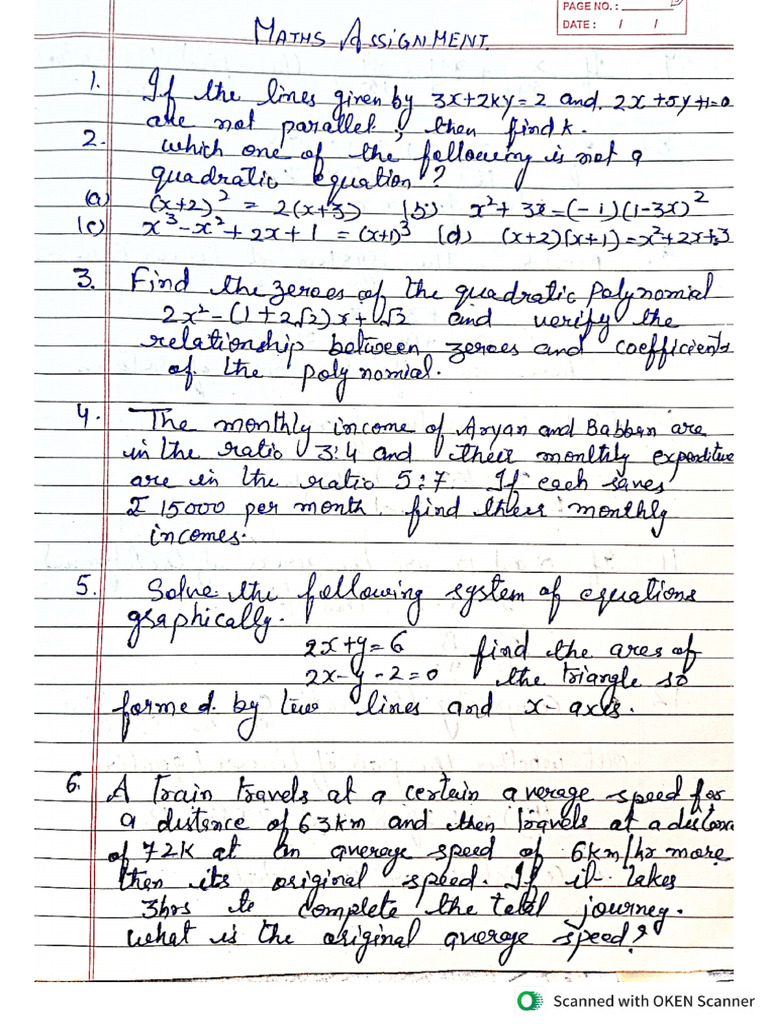 PAGE NO. :
DATE : / /
MATHS ASSIGNMENT.
1. If the lines given by 3x+2ky=2 and 2x+5y+1=0
are not parallel, then find k.
2. which one of the following is not a
quadratic equation?
(a) (x+2)² = 2(x+3) (b) x²+3x=(-1)(1-3x)²
(c) x³-x²+2x+1=(x+1)³ (d) (x+2)(x+1)=x²+2x+3
3. Find the zeroes of the quadratic polynomial
2x²-(1+2√2)x+√2 and verify the
relationship between zeroes and coefficients
of the polynomial.
4. The monthly income of Aryan and Babban are
in the ratio 3:4 and their monthly expenditure
are in the ratio 5:7. If each saves
₹ 15000 per month find their monthly
incomes.
5. Solve the following system of equations
graphically.
2x+y=6 find the area of
2x-y-2=0 the triangle so
formed by two lines and x-axis.
6. A train travels at a certain average speed for
a distance of 63km and then travels at a distance
of 72K at an average speed of 6km/hr more
then its original speed. If it takes
3hrs to complete the total journey.
what is the original average speed?
Scanned with OKEN Scanner